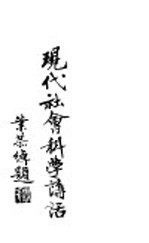 現代社會科學講話
葉恭綽題